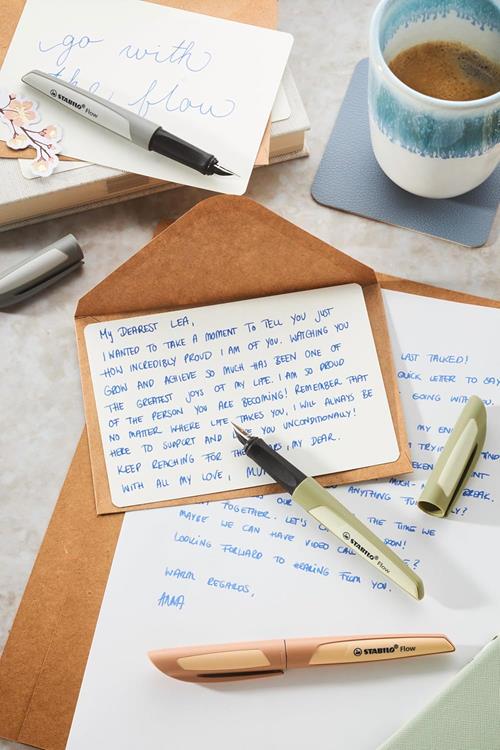 go with
the flow
STABILO Flow
MY DEAREST LEA,
I WANTED TO TAKE A MOMENT TO TELL YOU JUST
HOW INCREDIBLY PROUD I AM OF YOU. WATCHING YOU
GROW AND ACHIEVE SO MUCH HAS BEEN ONE OF
THE GREATEST JOYS OF MY LIFE. I AM SO PROUD
OF THE PERSON YOU ARE BECOMING! REMEMBER THAT
NO MATTER WHERE LIFE TAKES YOU, I WILL ALWAYS BE
HERE TO SUPPORT AND YOU UNCONDITIONALLY!
KEEP REACHING FOR THE , MY DEAR.
WITH ALL MY LOVE,
LAST TALKED!
QUICK LETTER TO SAY
GOING WITH
MY
ANYTHING
TOGETHER. LET'S THE TIME WE
MAYBE WE CAN HAVE VIDEO SOON!
LOOKING FORWARD TO HEARING FROM YOU.
WARM REGARDS,
ANNA
STABILO Flow
STABILO Flow